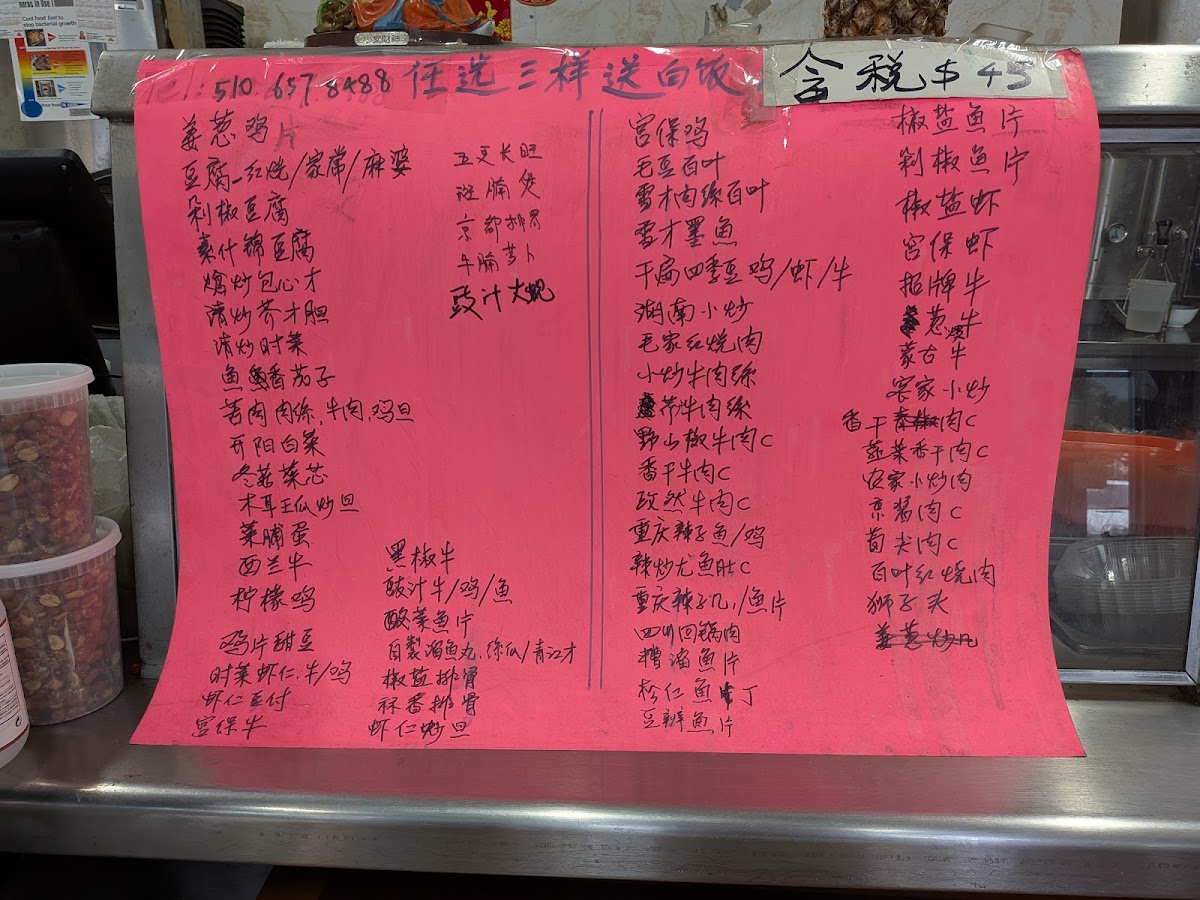 neras in use!
Cool food fast to
stop bacterial growth
小文财神
510 657 8488 任选三样送白饭
含税 $45
姜葱鸡片
豆腐-红烧/家常/麻婆
剁椒豆腐
素什锦豆腐
炝炒包心才
清炒芥才胆
清炒时菜
鱼香茄子
苦肉肉絲,牛肉,鸡旦
开阳白菜
冬菇菜芯
木耳王瓜炒旦
菜脯蛋
西兰牛
柠檬鸡
鸡片甜豆
时菜虾仁.牛/鸡
虾仁豆付
宫保牛
五更长旺
斑腩煲
京都排骨
牛腩萝卜
豉汁大蚬
黑椒牛
豉汁牛/鸡/鱼
酸菜鱼片
自製溜鱼丸.絲瓜/青江才
椒盐排骨
蒜香排骨
虾仁炒旦
宫保鸡
毛豆百叶
雪才肉絲百叶
雪才墨鱼
干扁四季豆 鸡/虾/牛
湖南小炒
毛家红烧肉
小炒牛肉絲
芹牛肉絲
野山椒牛肉C
香干牛肉C
孜然牛肉C
重庆辣子鱼/鸡
辣炒尤鱼肚C
重庆辣子几/鱼片
四川回锅肉
糟溜鱼片
松仁鱼丁
豆瓣鱼片
椒盐鱼片
剁椒鱼片
椒盐虾
宫保虾
招牌牛
葱爆牛
蒙古牛
客家小炒
香干肉C
韭菜香干肉C
农家小炒肉
京酱肉C
筍尖肉C
百叶红烧肉
狮子头
姜葱炒几